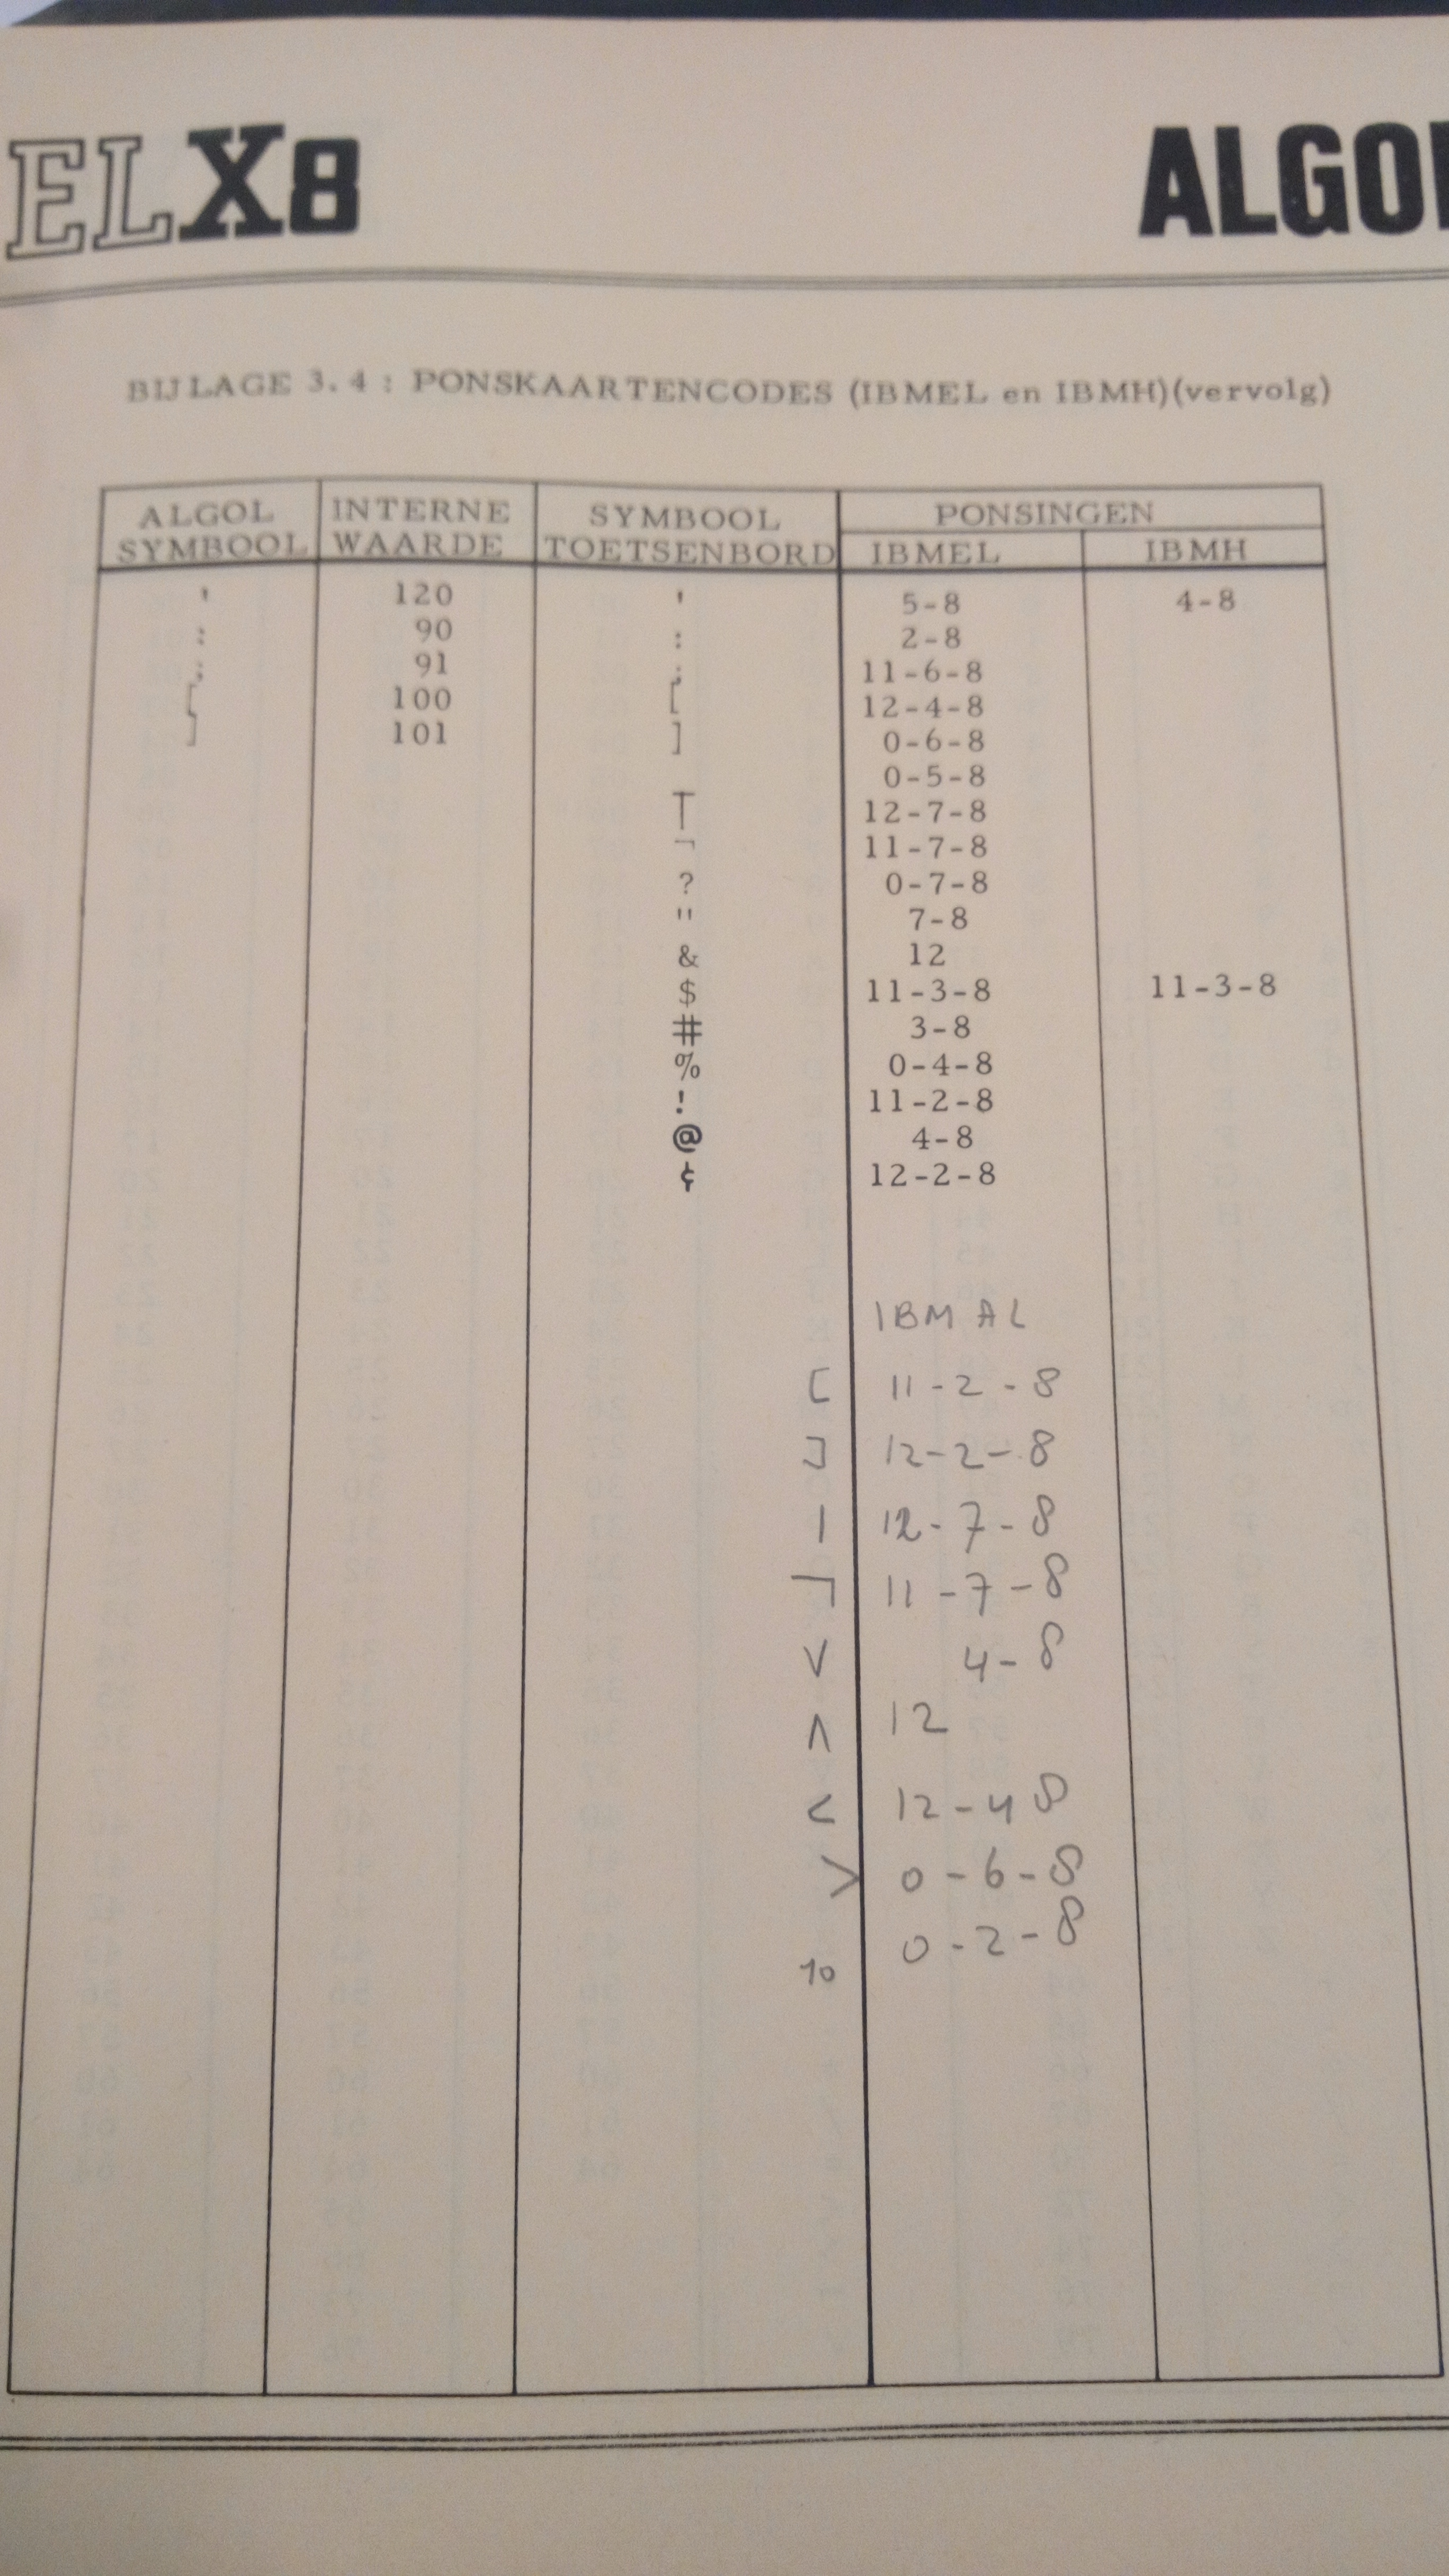 ELX8 ALGOL
BIJLAGE 3.4 : PONSKAARTENCODES (IBMEL en IBMH)(vervolg)
ALGOL SYMBOOL INTERNE WAARDE SYMBOOL TOETSENBORD PONSINGEN
IBMEL IBMH
' 120 ' 5-8 4-8
: 90 : 2-8
; 91 ; 11-6-8
[ 100 [ 12-4-8
] 101 ] 0-6-8
0-5-8
| 12-7-8
¬ 11-7-8
? 0-7-8
" 7-8
& 12
$ 11-3-8 11-3-8
# 3-8
% 0-4-8
! 11-2-8
@ 4-8
¢ 12-2-8
IBM AL
[ 11-2-8
] 12-2-8
| 12-7-8
¬ 11-7-8
∨ 4-8
∧ 12
< 12-4 8
> 0-6-8
10 0-2-8